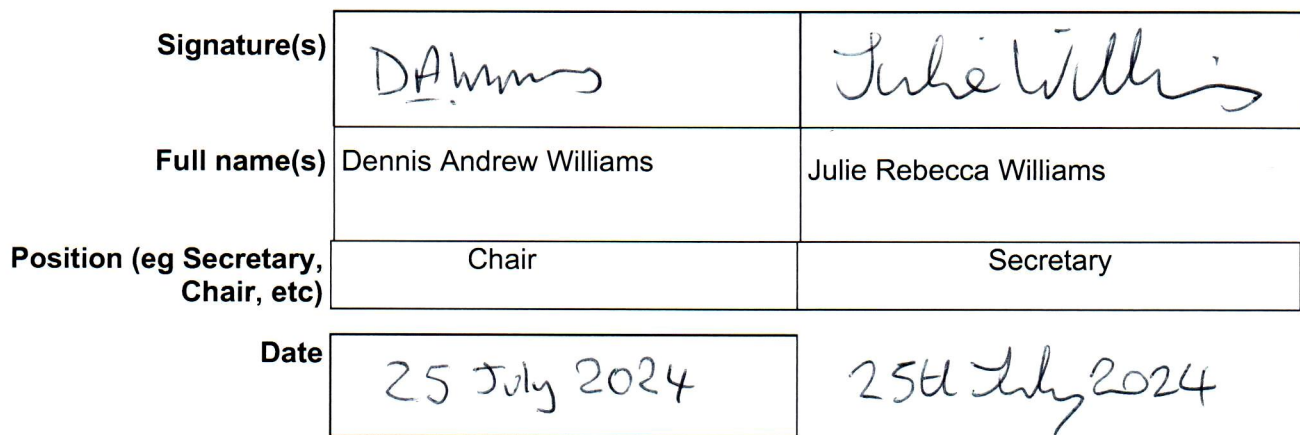 Signature(s)
Julie Williams
Full name(s) Dennis Andrew Williams Julie Rebecca Williams
Position (eg Secretary, Chair Secretary
Chair, etc)
Date 25 July 2024 25th July 2024